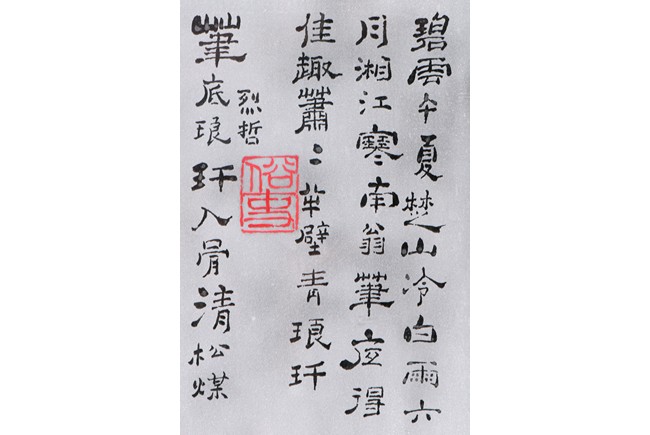 碧雲午夏楚山冷白雨六
月湘江寒南翁筆底得
佳趣蕭〻半壁青琅玕
烈哲
筆底琅玕入骨清松煤